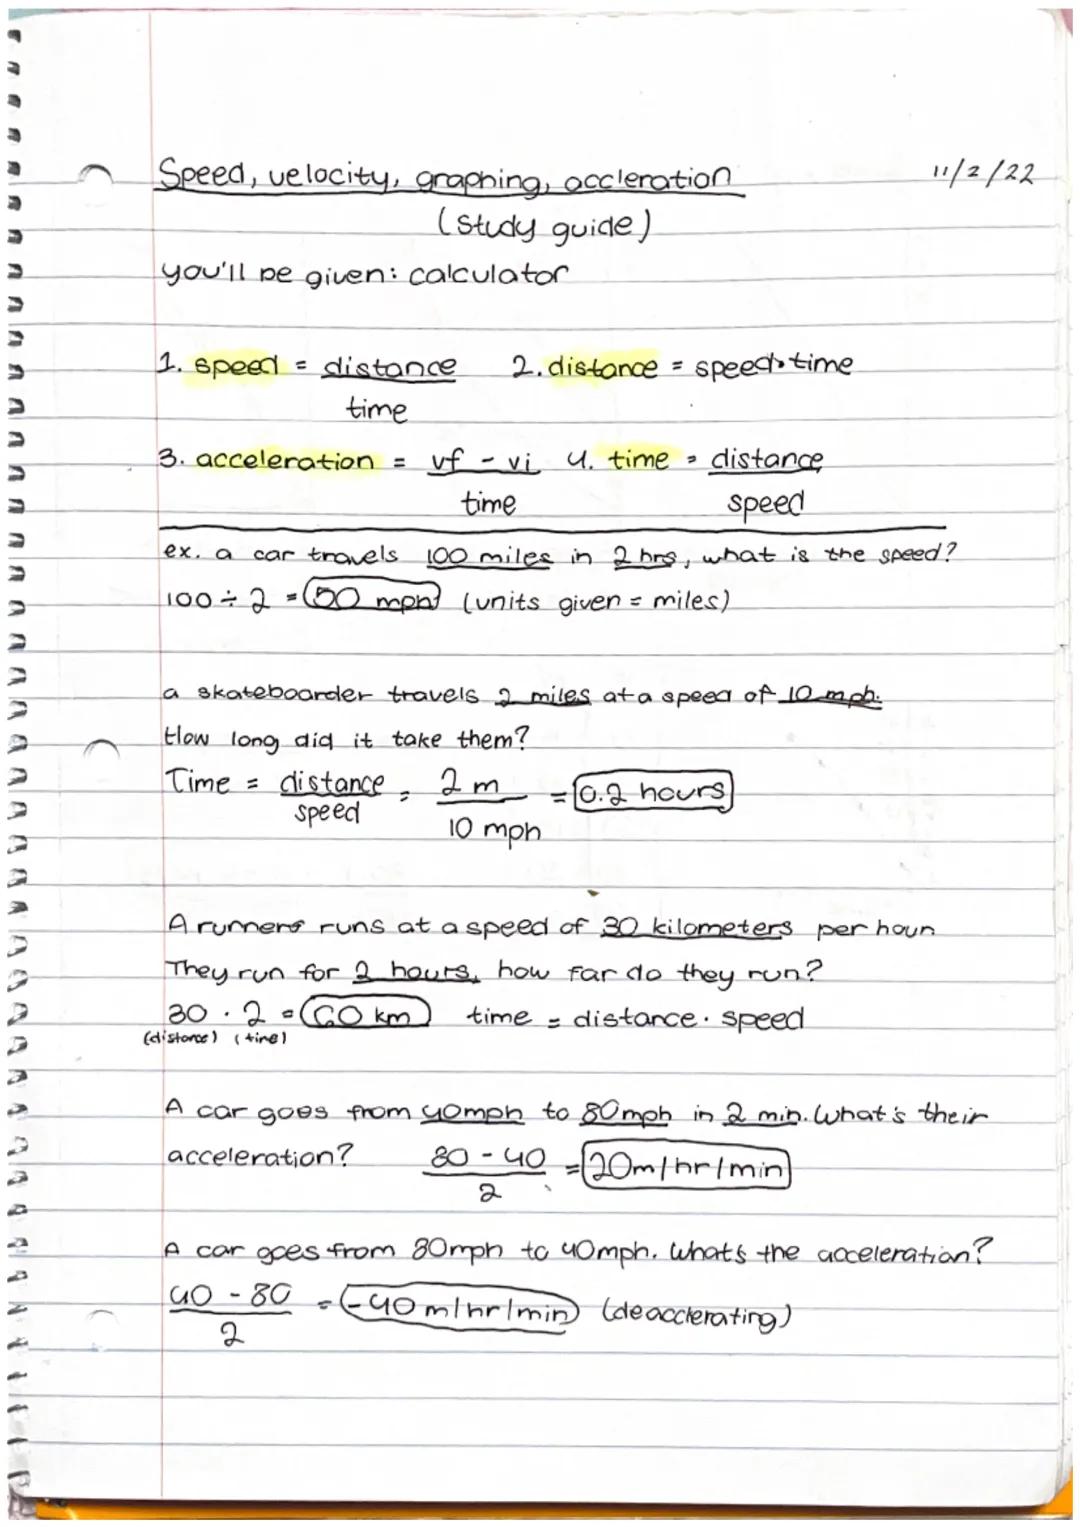 Speed, velocity, graphing, accleration 11/2/22
(study guide)
you'll be given: calculator
1. speed = distance 2. distance = speed • time
time
3. acceleration = vf - vi 4. time = distance
time speed
ex. a car travels 100 miles in 2 hrs, what is the speed?
100 ÷ 2 = 50 mph (units given = miles)
a skateboarder travels 2 miles at a speed of 10 mph.
How long did it take them?
Time = distance = 2 m = 0.2 hours
speed 10 mph
A runners runs at a speed of 30 kilometers per hour
They run for 2 hours, how far do they run?
30 · 2 = 60 km time = distance · speed
(distance) (time)
A car goes from 40mph to 80mph in 2 min. What's their
acceleration? 80 - 40 = 20m/hr/min
2
A car goes from 80mph to 40mph. What's the acceleration?
40 - 80 = -40 m/hr/min (deacclerating)
2